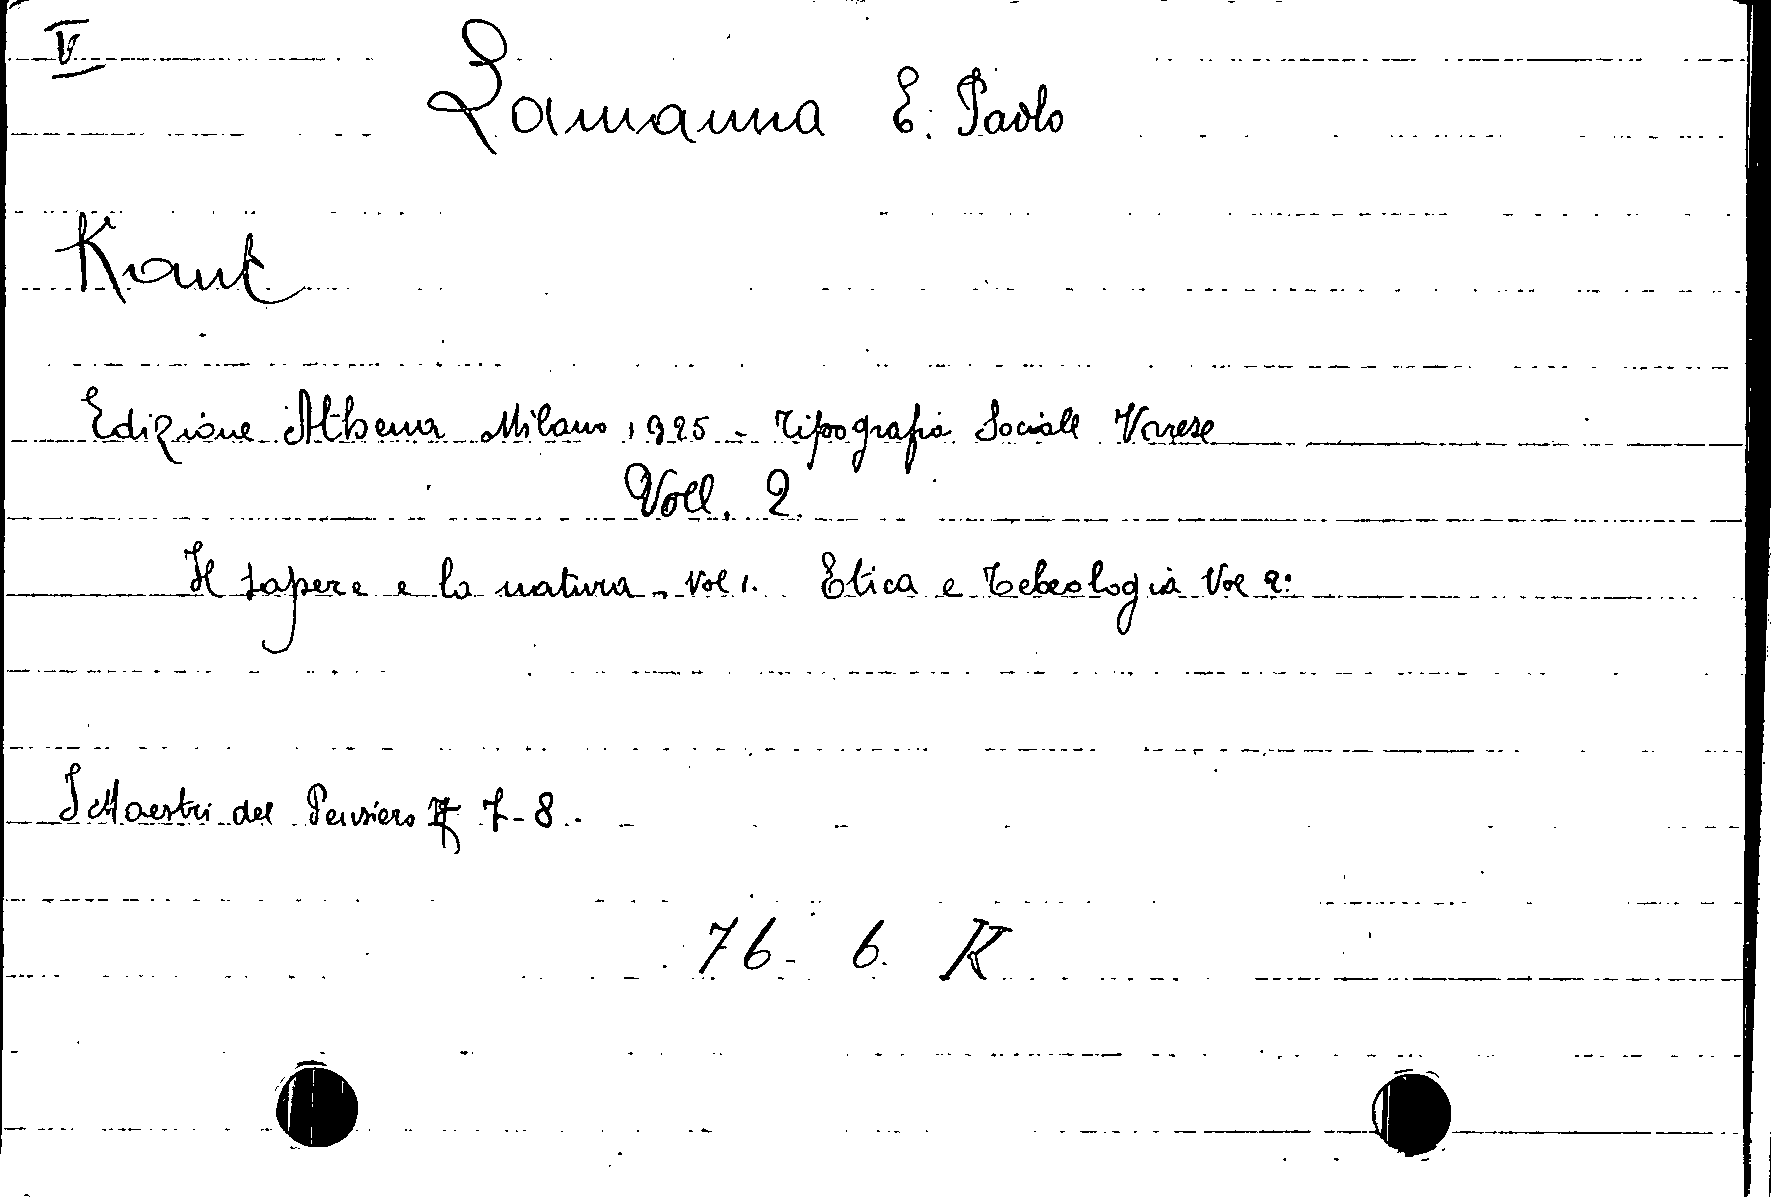 V
Lamanna E. Paolo
Kant
Edizione Athena Milano 1925 - Tipografia Sociale Varese
Voll. 2
Il sapere e la natura - Vol 1. Etica e Teleologia Vol 2:
I Maestri del Pensiero 7-8.
76- 6. K